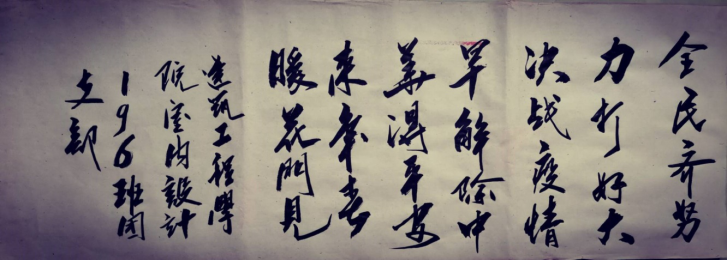 全民齐努
力打好大
决战疫情
早解除中
华得平安
来年春
暖花開見
建筑工程學
院室内設計
196班团
支部